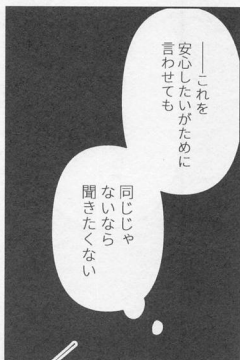 ──これを
安心したいがために
言わせても
同じじゃ
ないなら
聞きたくない